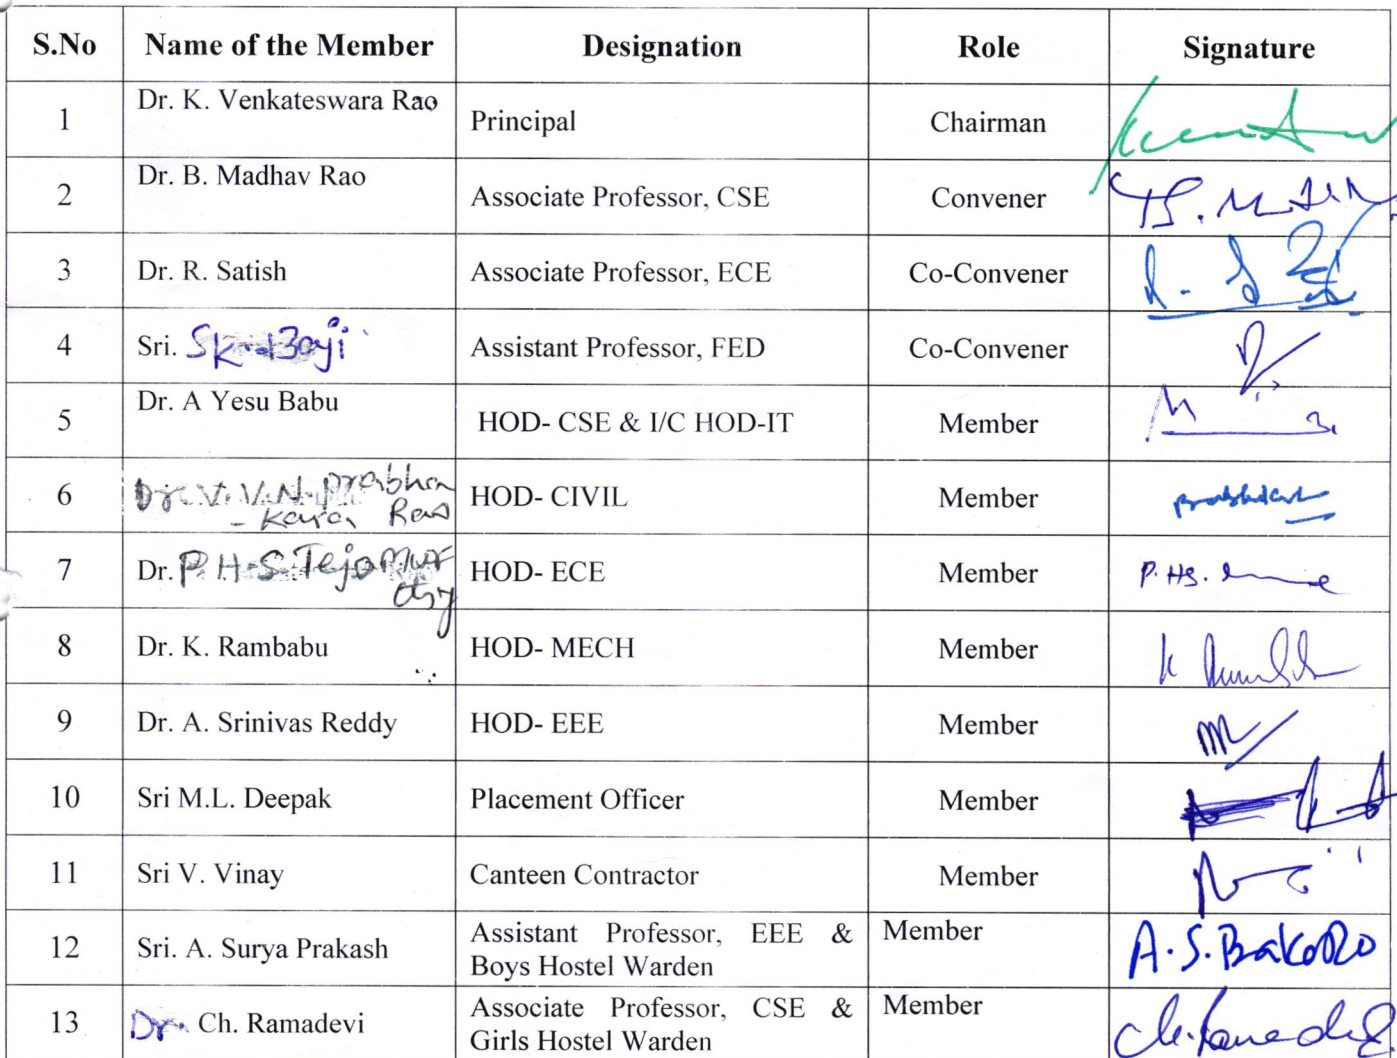 S.No Name of the Member Designation Role Signature
1 Dr. K. Venkateswara Rao Principal Chairman
2 Dr. B. Madhav Rao Associate Professor, CSE Convener
3 Dr. R. Satish Associate Professor, ECE Co-Convener
4 Sri. Sk. Baji Assistant Professor, FED Co-Convener
5 Dr. A Yesu Babu HOD- CSE & I/C HOD-IT Member
6 Dr. V.V.N. prabha HOD- CIVIL Member
- Kara Rao
7 Dr. P.H.S.Teja Mur HOD- ECE Member P.HS.
thy
8 Dr. K. Rambabu HOD- MECH Member
9 Dr. A. Srinivas Reddy HOD- EEE Member
10 Sri M.L. Deepak Placement Officer Member
11 Sri V. Vinay Canteen Contractor Member
12 Sri. A. Surya Prakash Assistant Professor, EEE & Member A.S.
Boys Hostel Warden
13 Dr. Ch. Ramadevi Associate Professor, CSE & Member Ch. Ramadevi
Girls Hostel Warden